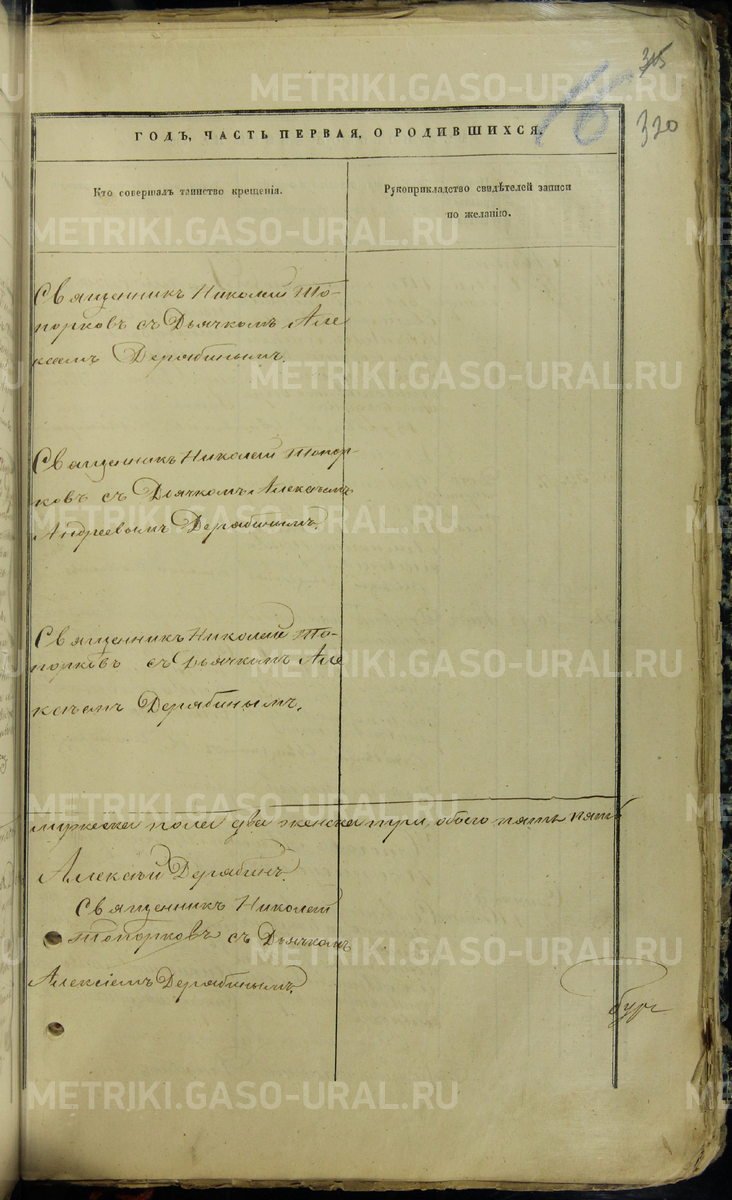 315
320
ГОДЪ, ЧАСТЬ ПЕРВАЯ, О РОДИВШИХСЯ.
Кто совершалъ таинство крещенія.
Рукоприкладство свидѣтелей записи
по желанію.
Священникъ Николай То-
порковъ съ Дьячкомъ Але
ксѣемъ Дерябинымъ.
Священникъ Николай Топор-
ковъ съ Дьячкомъ Алексѣемъ
Андреевымъ Дерябинымъ.
Священникъ Николай То-
порковъ съ Дьячкомъ Але
ксѣемъ Дерябинымъ.
мужеска пола два женска три, обоего пять пять
Алексѣй Дерябинъ.
Священникъ Николай
Топорковъ съ Дьячкомъ
Алексіемъ Дерябинымъ.
бург
METRIKI.GASO-URAL.RU